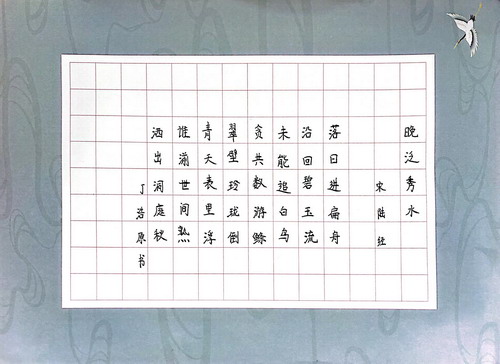 晚泛秀水
宋 陆经
落日进扁舟
沿回碧玉流
未能追白鸟
贪共数游鲦
翠壁玲珑倒
青天表里浮
惟湔世间热
洒出洞庭秋
丁浩原书